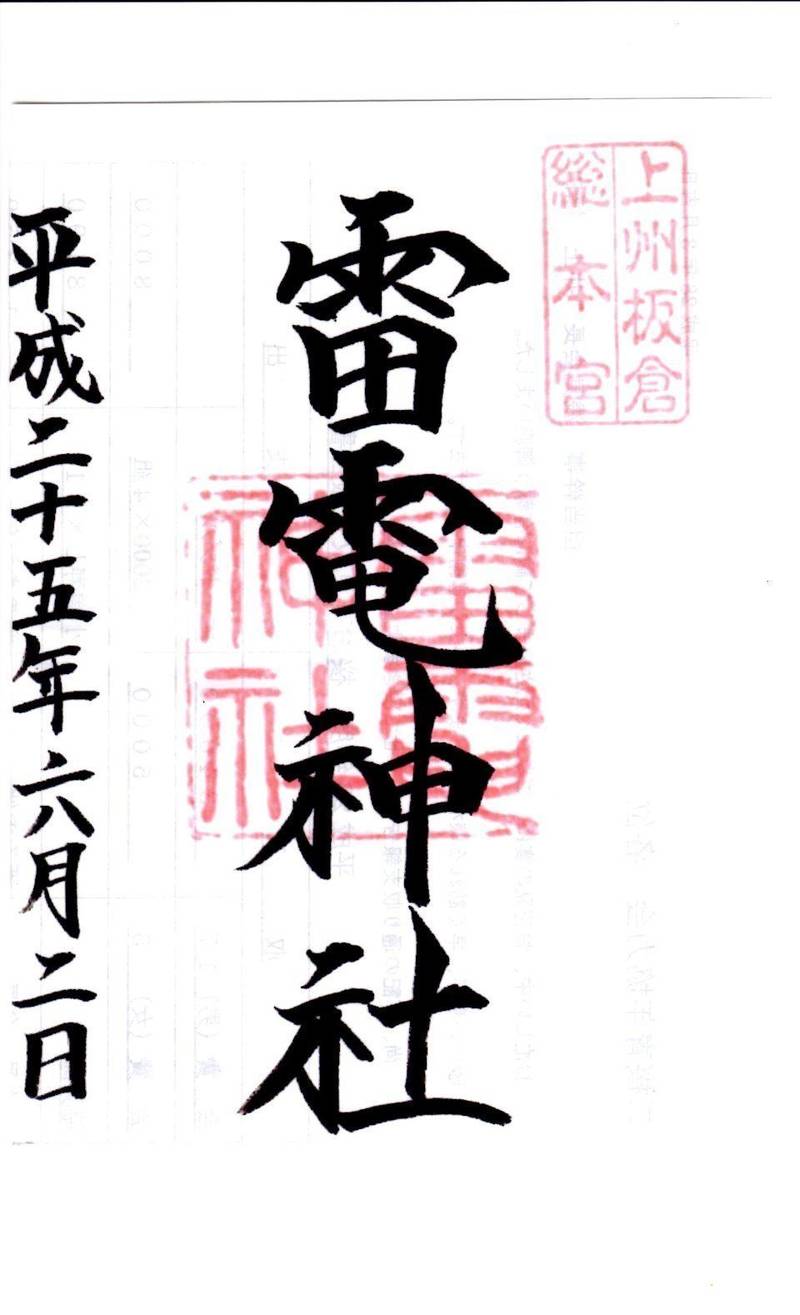 上州板倉
総本宮
雷電神社
雷電神社
平成二十五年六月二日